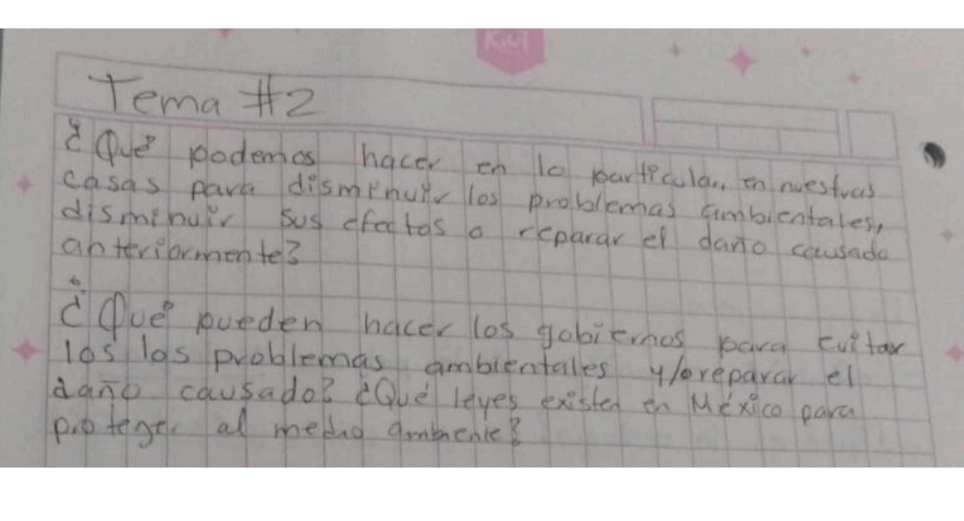 Kiut
Tema #2
¿Qué podemos hacer en lo particular, en nuestras
casas para disminuir los problemas ambientales,
disminuir sus efectos o reparar el daño causado
anteriormente?
¿Qué pueden hacer los gobiernos para evitar
los los problemas ambientales y/o reparar el
daño causado? ¿Qué leyes existen en México para
proteger al medio ambiente?